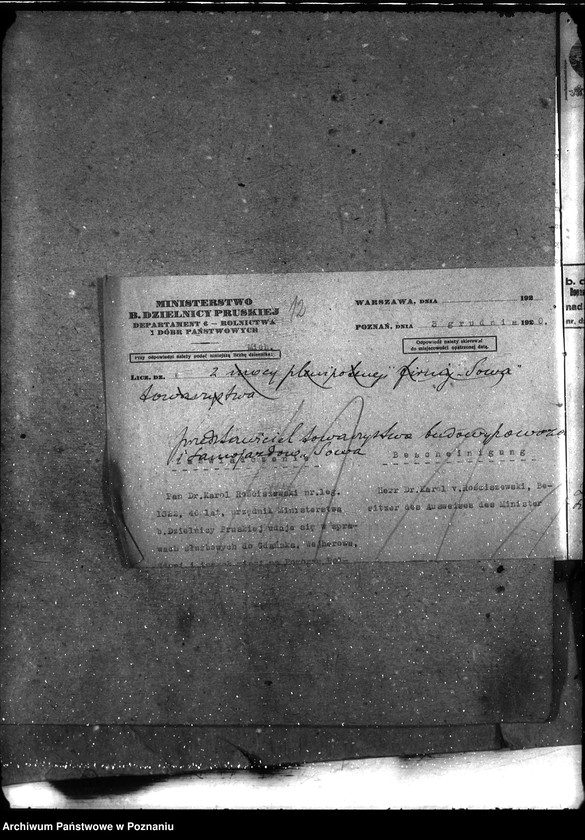 MINISTERSTWO
B. DZIELNICY PRUSKIEJ
DEPARTAMENT 6 — ROLNICTWA
I DÓBR PAŃSTWOWYCH
12
WARSZAWA, DNIA 192
POZNAŃ, DNIA 3 grudnia 1920.
Przy odpowiedzi należy podać niniejszą liczbę dziennika:
Odpowiedź należy skierować
do miejscowości opatrzonej datą.
LICZ. DZ.
z mocy plenipotencji firmy "Sowa"
towarzystwa
przedstawiciel towarzystwa budowy powozów
i samojazdów Sowa
Bescheinigung
Pan Dr. Karol Rościszewski nr. leg.
1322, 46 lat, urzędnik Ministerstwa
b. Dzielnicy Pruskiej udaje się w spra-
wach służbowych do Gdańska, Wejherowa,
Herr Dr. Karol v. Rościszewski, Be-
sitzer des Ausweises des Minister
b. d
nad
nr. d
Archiwum Państwowe w Poznaniu